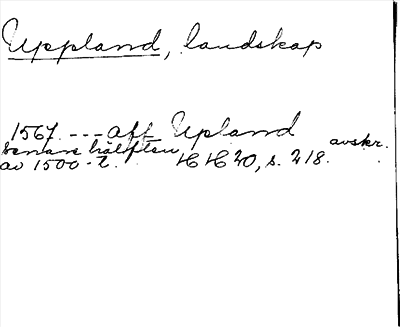 Uppland, landskap
1567. --- aff Upland
avskr.
senare hälften
av 1500-t. HH 20, s. 218.